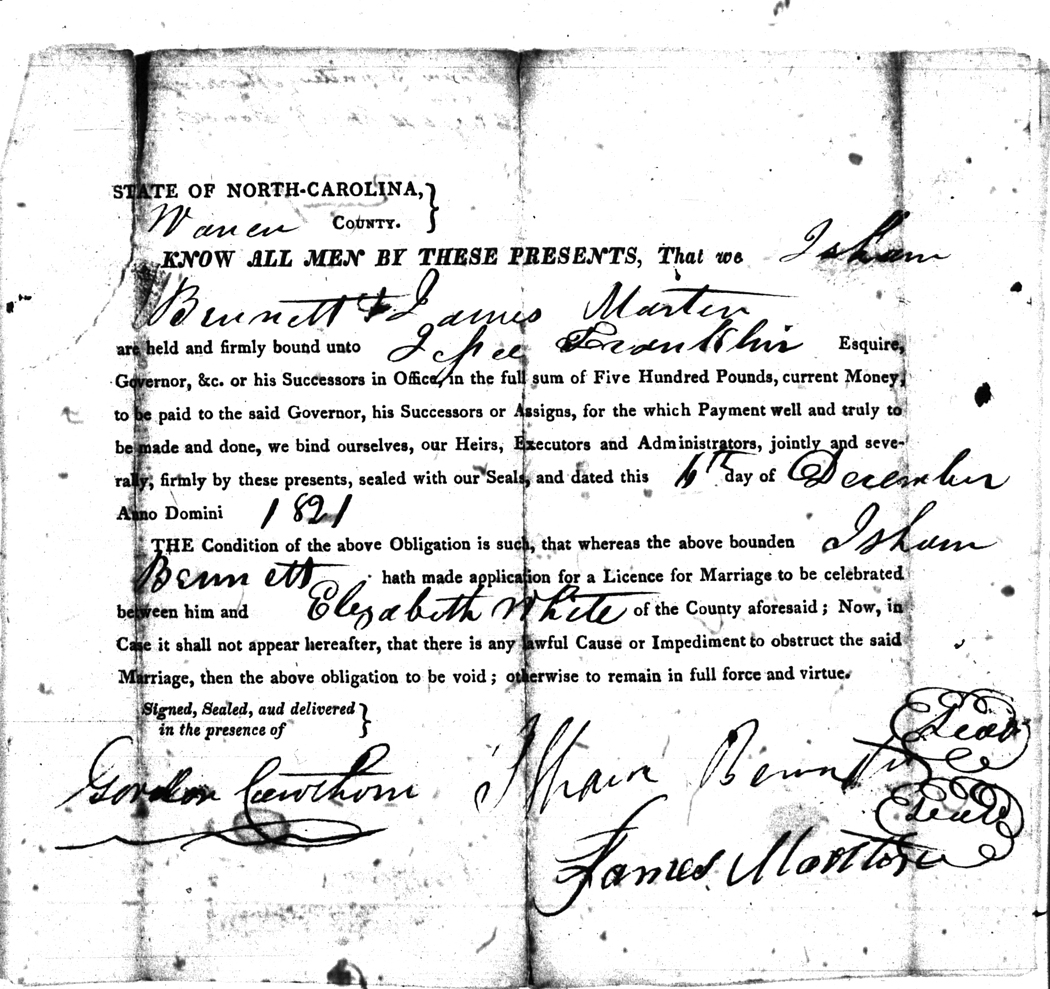 STATE OF NORTH-CAROLINA,
Warren COUNTY.
KNOW ALL MEN BY THESE PRESENTS, That we Isham
Bennett & James Martin
are held and firmly bound unto Jesse Franklin Esquire,
Governor, &c. or his Successors in Office, in the full sum of Five Hundred Pounds, current Money,
to be paid to the said Governor, his Successors or Assigns, for the which Payment well and truly to
be made and done, we bind ourselves, our Heirs, Executors and Administrators, jointly and seve-
rally, firmly by these presents, sealed with our Seals, and dated this day of December
Anno Domini 1821
THE Condition of the above Obligation is such, that whereas the above bounden Isham
Bennett hath made application for a Licence for Marriage to be celebrated
between him and Elizabeth White of the County aforesaid; Now, in
Case it shall not appear hereafter, that there is any lawful Cause or Impediment to obstruct the said
Marriage, then the above obligation to be void; otherwise to remain in full force and virtue.
Signed, Sealed, aud delivered
in the presence of
Gordon Cawthorn Isham Bennett Seal
James Martin Seal